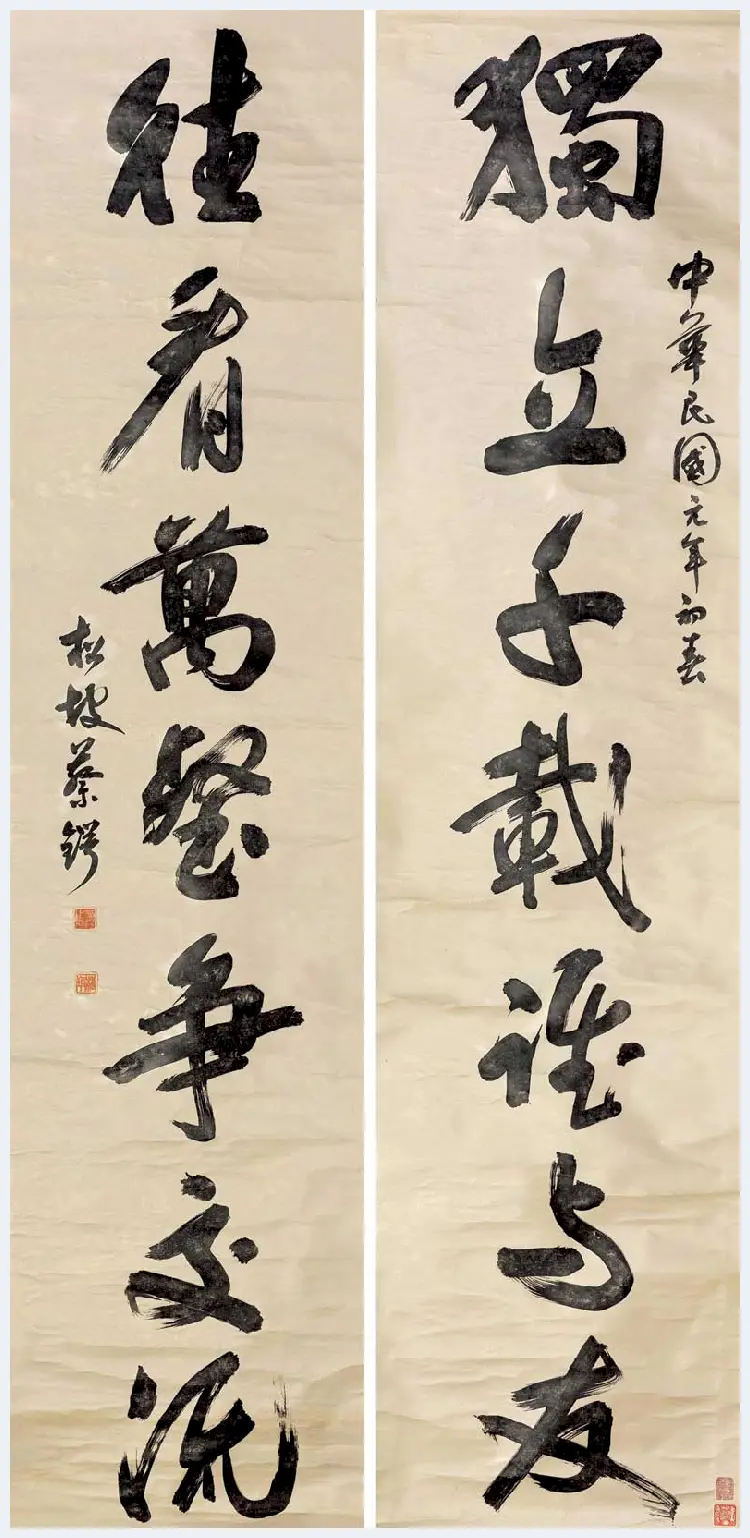 中華民國元年初春
獨立千載誰与友
往看萬壑争交流
松坡蔡鍔